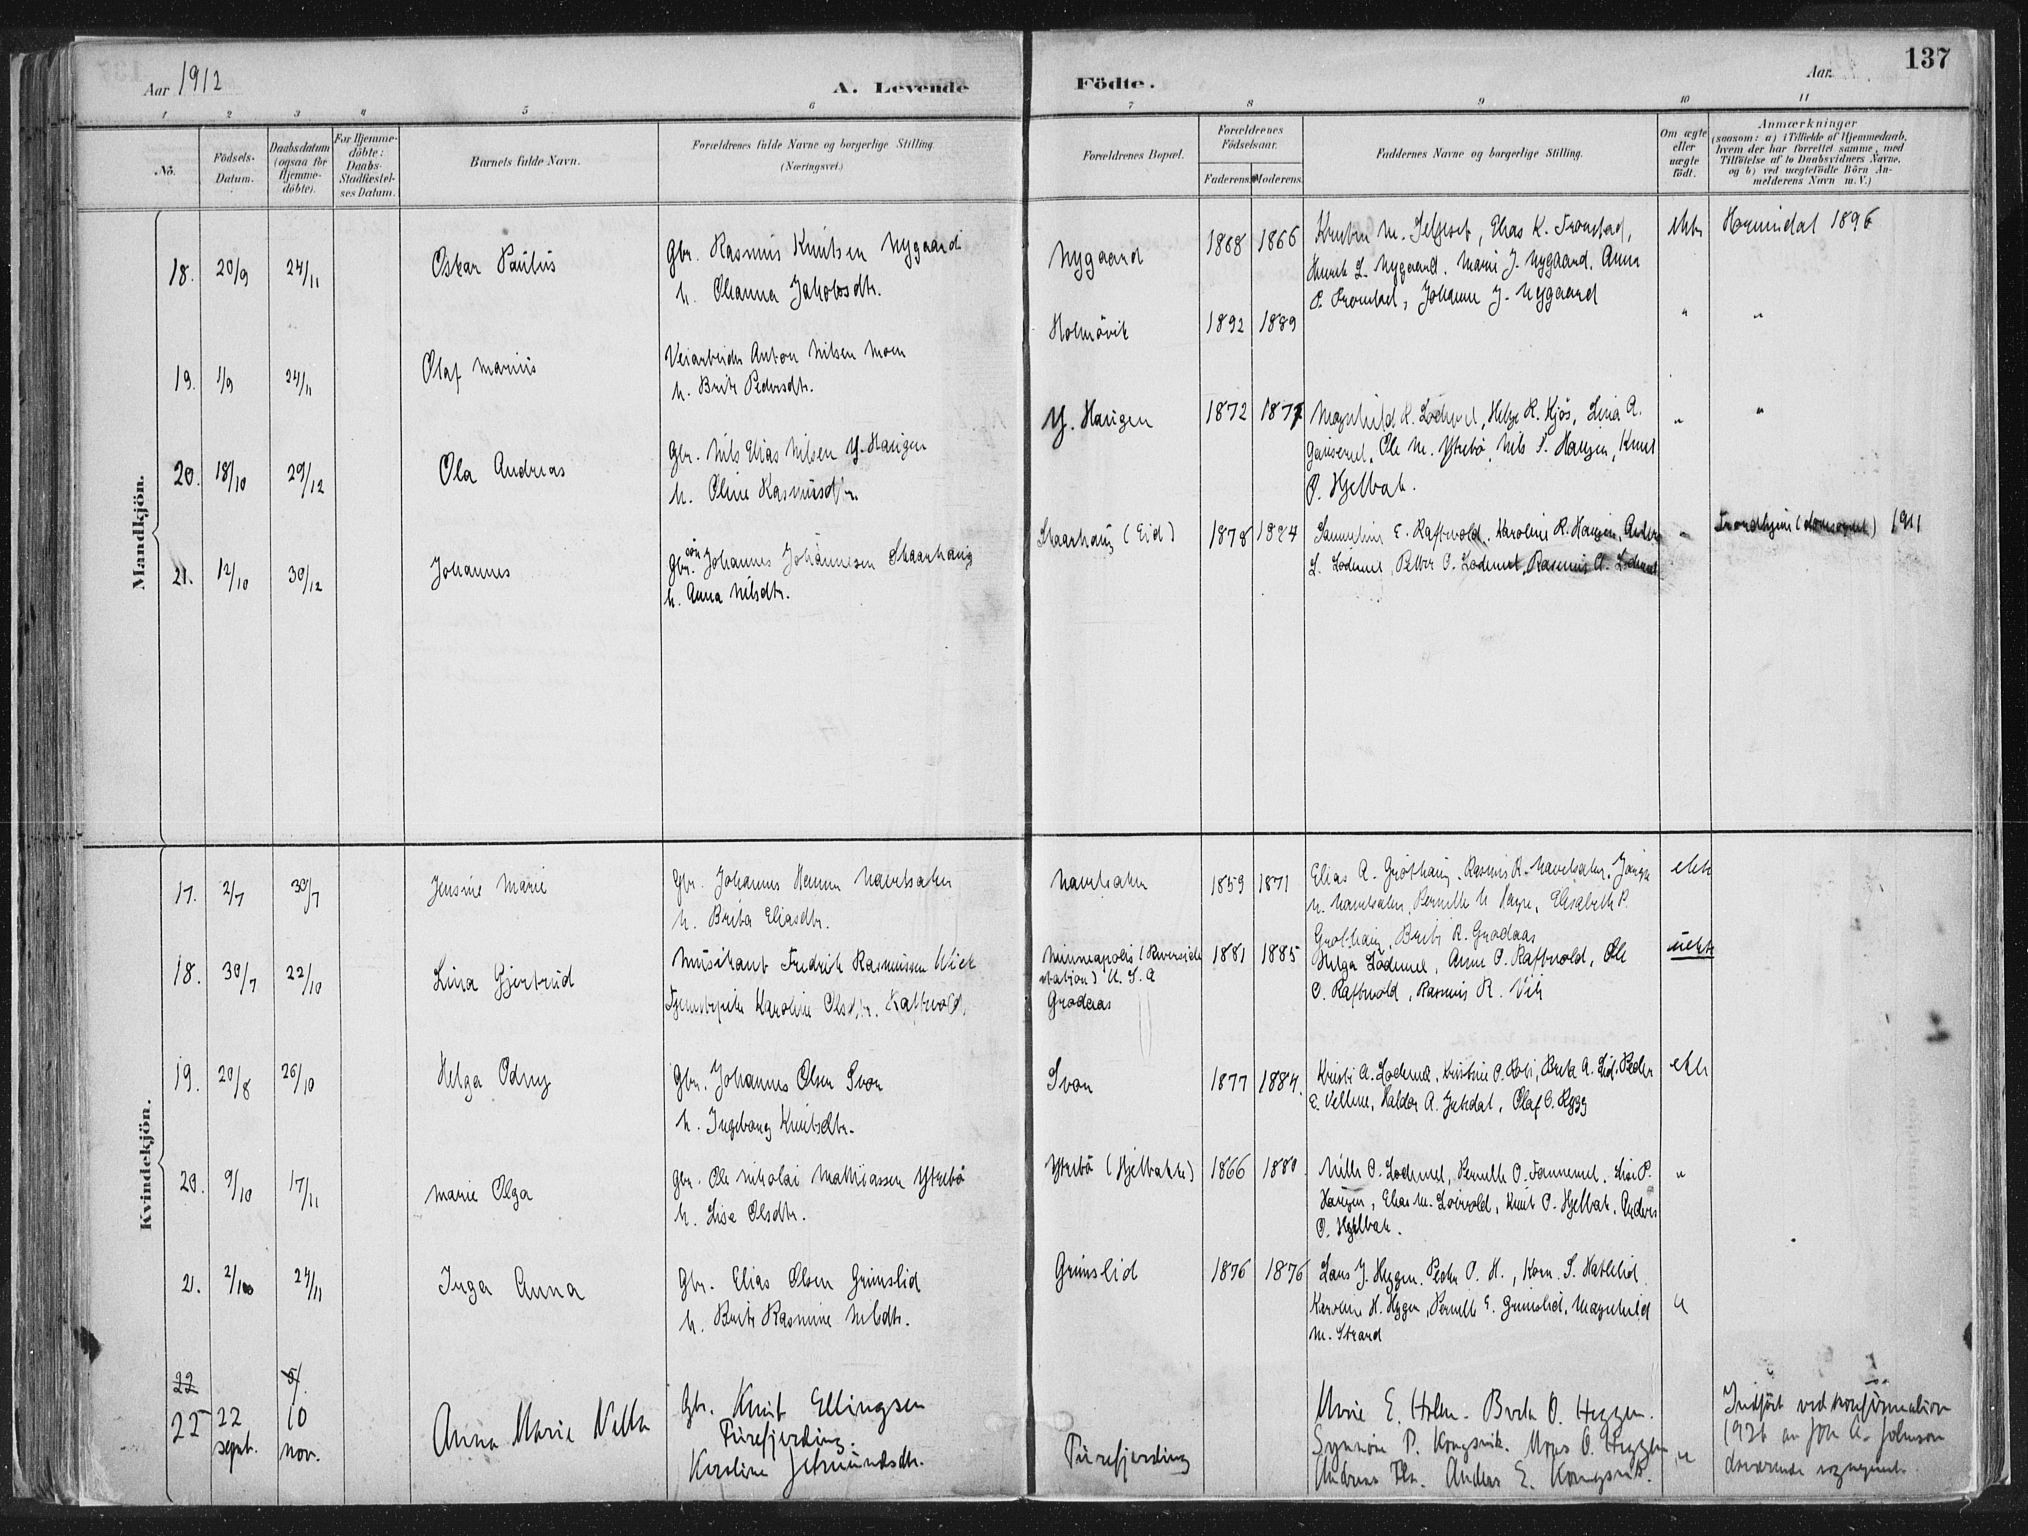 137
Aar 1912
A. Levende
Födte.
Aar
1 2 3 4 5 6 7 8 9 10 11
No.
Födsels-Datum.
Daabsdatum (ogsaa for Hjemme-döbte).
For Hjemme-döbte: Daabs-Stadfæstel-ses Datum.
Barnets fulde Navn.
Forældrenes fulde Navne og borgerlige Stilling. (Næringsvei.)
Forældrenes Bopæl.
Forældrenes Födselsaar.
Faderens. Moderens.
Faddernes Navne og borgerlige Stilling.
Om ægte eller uægte födt.
Anmærkninger
(saasom: a) i Tilfælde af Hjemmedaab,
hvem der har forrettet samme, med
Tilföielse af to Daabsvidners Navne,
og b) ved uægtefödte Börn An-
melderens Navn m. V.)
Mandkjön.
18. 20/9 24/11 Oskar Paulus
Gbr. Rasmus Knutsen Nygaard
h. Johanna Jakobsdtr.
Nygaard 1868 1866
M. Selfseth, Elias K. Tronstad,
L. Nygaard. Marie J. Nygaard. Anna
P. Tronstad, Johanne J. Nygaard
ekte
Hornindal 1896
19. 1/9 24/11 Olaf Marius
Veiarbeider Anton Nilsen Moen
h. Brite Pedersdtr.
Holmövik 1892 1889 " "
20. 18/10 29/12 Ola Andreas
Gbr. Nils Elias Nilsen Y. Haugen
h. Oline Rasmusdtr.
Y. Haugen 1872 1877
Magnhild R. Lödemel, Helge R. Kjös, Lina A.
Ole M. Ytrebö, Nils S. Haugen, Knut
O. Hjelbak.
" "
21. 12/10 30/12 Johannes
Gbr. sön Johannes Johannesen Skaarhaug
h. Anna Nilsdtr.
Skaarhaug (Eid) 1878 1884
E. Raftevold. Karoline R. Haugen, Anders
L. Lödemel, Petter O. Lödemel, Rasmus A. Lödemel
"
Trondhjem 1911
Kvindekjön.
17. 2/7 30/7 Jensine Marie
Gbr. Johannes Navelsaker
h. Brita Eliasdtr.
Navelsaker 1859 1871
Elias A. Grothaug. Rasmus R. Navelsaker.
N. Navelsaker, Pernille N. Elisabeth P.
Grothaug, Brite R. Grodaas
ekte
18. 30/7 22/10 Lina Gjertrud
Musikant Fredrik Rasmussen Wiek
Tjenestepike Karoline Olsdtr. Raftevold.
Minneapolis (Riverside
station) U. S. A
Grodaas
1881 1885
Helga Lödemel, Anne O. Raftevold, Ole
O. Raftevold, Rasmus R. Vik
uekte
19. 20/8 26/10 Helga Odny
Gbr. Johannes Olsen Svor
h. Ingeborg Knutsdtr.
Svor 1877 1884.
Kristi A. Lödemel, Kristine O. Brita A. Lid, Peder
E. Haldor A. Olaf O.
ekte
20. 9/10 17/11 Marie Olga
Gbr. Ole Nikolai Mathiassen Ytrebö
h. Lisa Olsdtr.
Ytrebö (Hjelbakke) 1866 1880
O. Lödemel, Pernille O. Lisa P.
Haugen, Elias M. Knut O. Hjelbak. Anders
O. Hjelbak.
"
21. 2/10 24/11 Inga Anna
Gbr. Elias Olsen Grimslid
h. Brite Rasmine Nilsdtr.
Grimslid 1876 1876
Lars J. Heggen. Peder O. H., S. Hatlelid
Karoline H. Pernille E. Grimslid, Magnhild
M. Strand
"
22 5/.
25 22 sept. 10 nov. Anna Marie Nella
Gbr. Knut Ellingsen
Tusefjerding.
Karoline Jetmundsdtr.
Tusefjerding
Marie E. Holm. Berta O. Heggen.
Synnöve P. Kongsvik. Mons O. Heggen
Andreas Andreas E. Kongsvik.
"
Indfört ved konfirmation
1926 av Joh A. Johnson
daværende sogneprest.